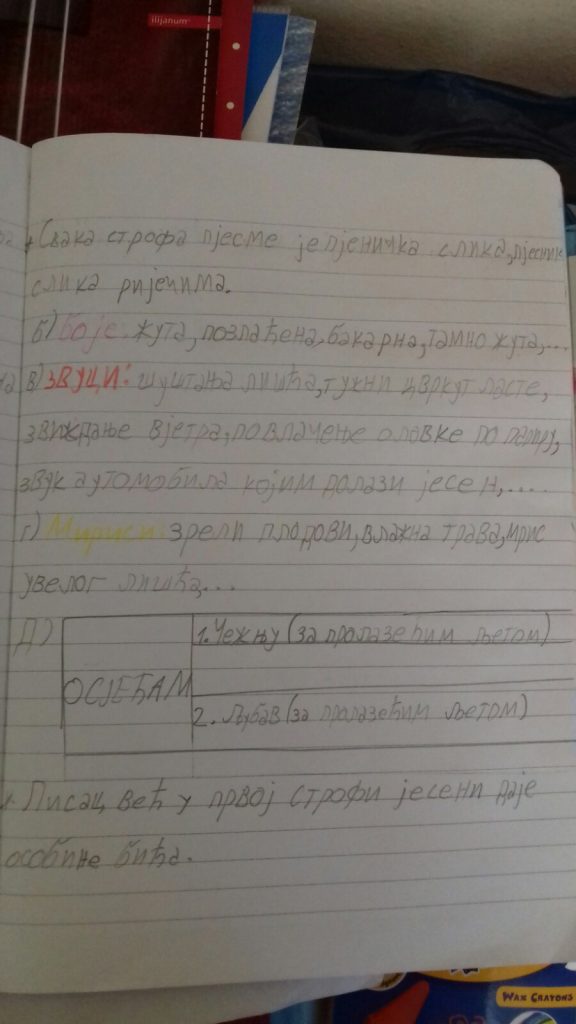 ilijanum
+ Свака строфа пјесме је пјеничка слика, пјесник
слика ријечима.
б) Боје: жута, позлаћена, бакарна, тамно жута,...
в) ЗВУЦИ: шуштања лишћа, тужни цвркут ласте,
звиждање вјетра, повлачење оловке по папиру,
звук аутомобила којим долази јесен,....
г) Мириси: зрели плодови, влажна трава, мирис
увелог лишћа,...
Д)
1. Чежњу (за пролазећим љетом)
ОСЈЕЋАМ
2. Љубав (за пролазећим љетом)
Писац већ у првој строфи јесени даје
особине бића.
WAX CRAYONS